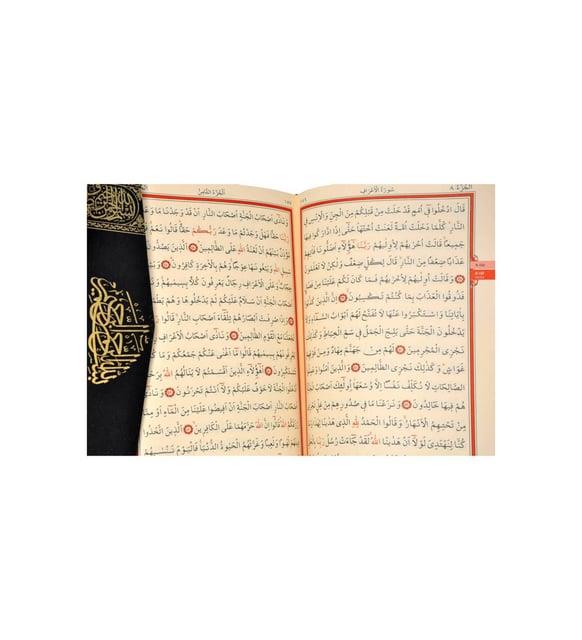 الجزء ٨
سُورَةُ الْأَعْرَافِ
قَالَ ادْخُلُوا فِي أُمَمٍ قَدْ خَلَتْ مِنْ قَبْلِكُمْ مِنَ الْجِنِّ وَالْإِنْسِ فِي
النَّارِ كُلَّمَا دَخَلَتْ أُمَّةٌ لَعَنَتْ أُخْتَهَا حَتَّى إِذَا ادَّارَكُوا فِيهَا
جَمِيعًا قَالَتْ أُخْرٰيهُمْ لِأُولٰيهُمْ رَبَّنَا هٰؤُلَاءِ أَضَلُّونَا فَاٰتِهِمْ
عَذَابًا ضِعْفًا مِنَ النَّارِ قَالَ لِكُلٍّ ضِعْفٌ وَلٰكِنْ لَا تَعْلَمُونَ
وَقَالَتْ أُولٰيهُمْ لِأُخْرٰيهُمْ فَمَا كَانَ لَكُمْ عَلَيْنَا مِنْ فَضْلٍ
فَذُوقُوا الْعَذَابَ بِمَا كُنْتُمْ تَكْسِبُونَ إِنَّ الَّذِينَ كَذَّبُوا
بِاٰيَاتِنَا وَاسْتَكْبَرُوا عَنْهَا لَا تُفَتَّحُ لَهُمْ أَبْوَابُ السَّمَاءِ وَلَا
يَدْخُلُونَ الْجَنَّةَ حَتَّى يَلِجَ الْجَمَلُ فِي سَمِّ الْخِيَاطِ وَكَذٰلِكَ
نَجْزِي الْمُجْرِمِينَ لَهُمْ مِنْ جَهَنَّمَ مِهَادٌ وَمِنْ فَوْقِهِمْ
غَوَاشٍ وَكَذٰلِكَ نَجْزِي الظَّالِمِينَ وَالَّذِينَ اٰمَنُوا وَعَمِلُوا
الصَّالِحَاتِ لَا نُكَلِّفُ نَفْسًا إِلَّا وُسْعَهَا أُولٰئِكَ أَصْحَابُ الْجَنَّةِ
هُمْ فِيهَا خَالِدُونَ وَنَزَعْنَا مَا فِي صُدُورِهِمْ مِنْ غِلٍّ تَجْرِي
مِنْ تَحْتِهِمُ الْأَنْهَارُ وَقَالُوا الْحَمْدُ لِلّٰهِ الَّذِي هَدٰينَا لِهٰذَا وَمَا
كُنَّا لِنَهْتَدِيَ لَوْلَا أَنْ هَدٰينَا اللّٰهُ لَقَدْ جَاءَتْ رُسُلُ رَبِّنَا
اَلْجُزْءُ الثَّامِنُ
وَنَادٰى أَصْحَابُ الْجَنَّةِ أَصْحَابَ النَّارِ أَنْ قَدْ وَجَدْنَا مَا وَعَدَنَا
رَبُّنَا حَقًّا فَهَلْ وَجَدْتُمْ مَا وَعَدَ رَبُّكُمْ حَقًّا قَالُوا نَعَمْ
مُؤَذِّنٌ بَيْنَهُمْ أَنْ لَعْنَةُ اللّٰهِ عَلَى الظَّالِمِينَ الَّذِينَ يَصُدُّونَ
سَبِيلِ اللّٰهِ وَيَبْغُونَهَا عِوَجًا وَهُمْ بِالْاٰخِرَةِ كَافِرُونَ
حِجَابٌ وَعَلَى الْأَعْرَافِ رِجَالٌ يَعْرِفُونَ كُلًّا بِسِيمٰيهُمْ
أَصْحَابَ الْجَنَّةِ أَنْ سَلَامٌ عَلَيْكُمْ لَمْ يَدْخُلُوهَا وَهُمْ
وَإِذَا صُرِفَتْ أَبْصَارُهُمْ تِلْقَاءَ أَصْحَابِ النَّارِ قَالُوا
تَجْعَلْنَا مَعَ الْقَوْمِ الظَّالِمِينَ وَنَادٰى أَصْحَابُ الْأَعْرَافِ
يَعْرِفُونَهُمْ بِسِيمٰيهُمْ قَالُوا مَا أَغْنٰى عَنْكُمْ جَمْعُكُمْ وَمَا
تَسْتَكْبِرُونَ أَهٰؤُلَاءِ الَّذِينَ أَقْسَمْتُمْ لَا يَنَالُهُمُ اللّٰهُ
ادْخُلُوا الْجَنَّةَ لَا خَوْفٌ عَلَيْكُمْ وَلَا أَنْتُمْ تَحْزَنُونَ وَنَادٰى
أَصْحَابُ النَّارِ أَصْحَابَ الْجَنَّةِ أَنْ أَفِيضُوا عَلَيْنَا مِنَ الْمَاءِ أَوْ مِمَّا
رَزَقَكُمُ اللّٰهُ قَالُوا إِنَّ اللّٰهَ حَرَّمَهُمَا عَلَى الْكَافِرِينَ الَّذِينَ اتَّخَذُوا
دِينَهُمْ لَهْوًا وَلَعِبًا وَغَرَّتْهُمُ الْحَيٰوةُ الدُّنْيَا فَالْيَوْمَ نَنْسٰيهُمْ